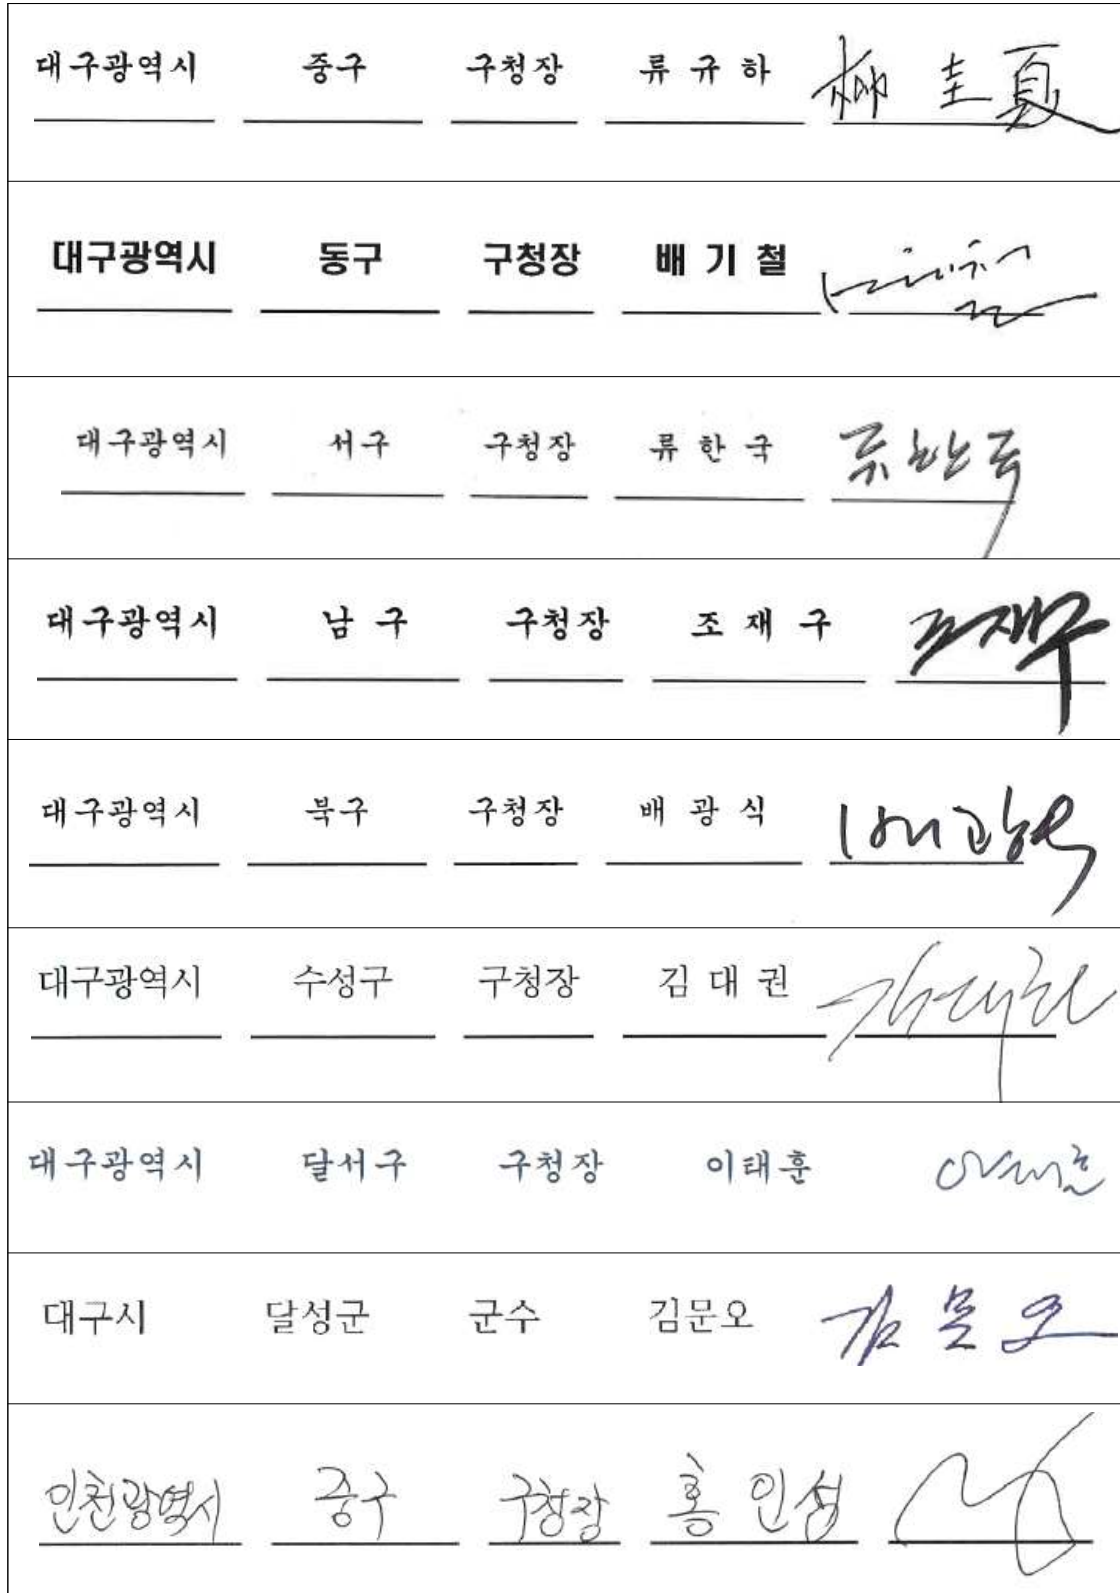 대구광역시 중구 구청장 류 규 하 柳 圭 夏
대구광역시 동구 구청장 배 기 철
대구광역시 서구 구청장 류 한 국 류한국
대구광역시 남 구 구청장 조 재 구 조재구
대구광역시 북구 구청장 배 광 식 배광식
대구광역시 수성구 구청장 김 대 권 김대권
대구광역시 달서구 구청장 이태훈 이태훈
대구시 달성군 군수 김문오 김문오
인천광역시 중구 구청장 홍 인 성